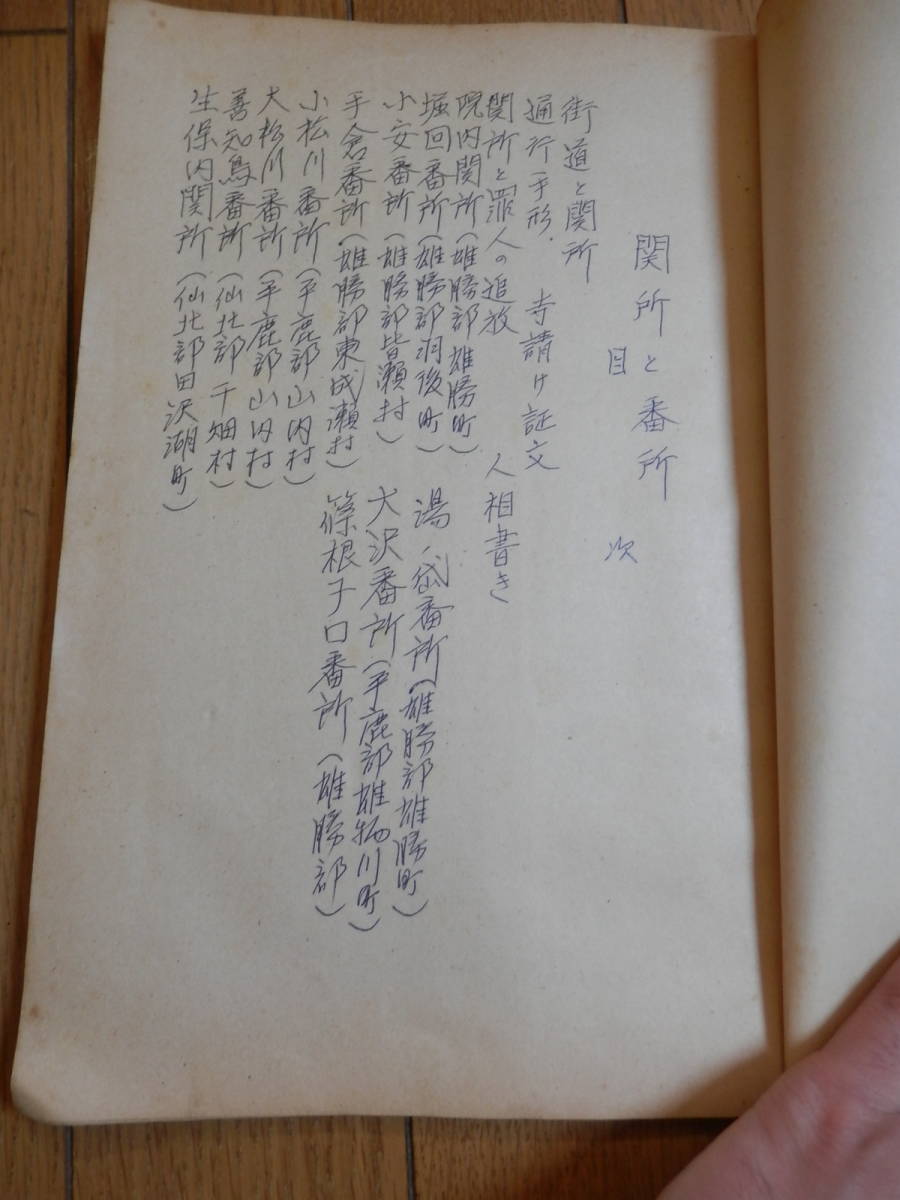 関所と番所
目　次
街道と関所
通行手形・　寺請け証文
関所と罪人の追放　人相書き
院内関所（雄勝郡雄勝町）
堀回番所（雄勝郡羽後町）
小安番所（雄勝郡皆瀬村）
手倉番所（雄勝郡東成瀬村）
小松川番所（平鹿郡山内村）
大松川番所（平鹿郡山内村）
善知鳥番所（仙北郡千畑村）
生保内関所（仙北郡田沢湖町）
湯ノ岱番所（雄勝郡雄勝町）
大沢番所（平鹿郡雄物川町）
篠根子口番所（雄勝郡）